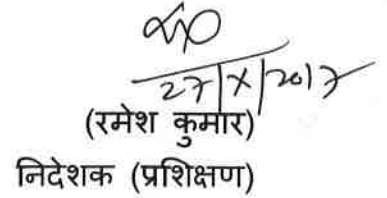 27/X/2017
(रमेश कुमार)
निदेशक (प्रशिक्षण)